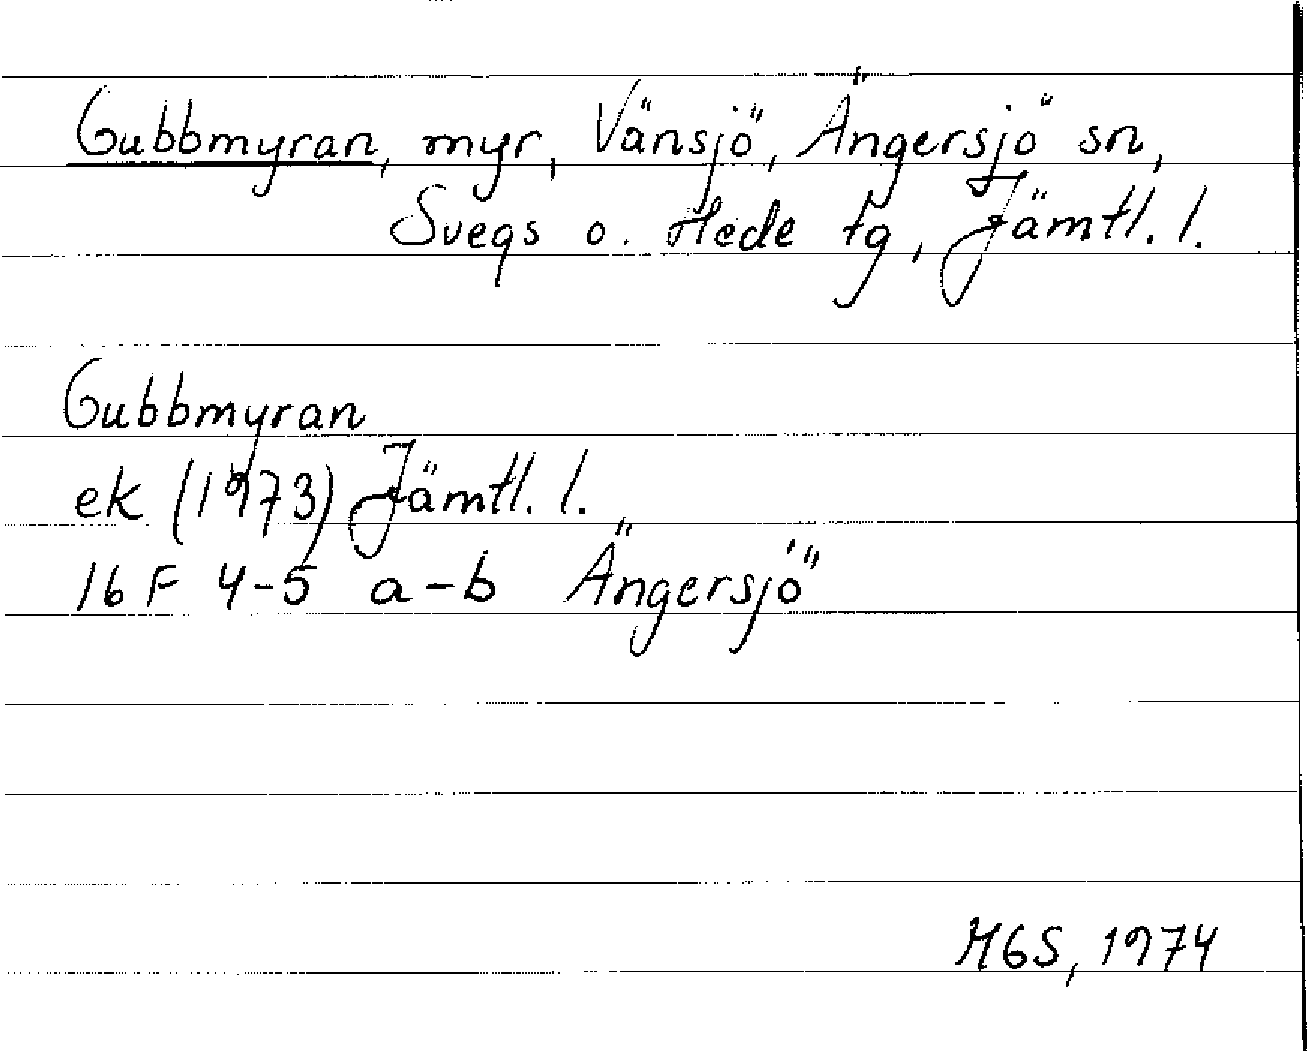 Gubbmyran, myr, Vänsjö, Ängersjö sn,
Svegs o. Hede tg, Jämtl. l.
Gubbmyran
ek (1973) Jämtl. l.
16 F 4-5 a-b Ängersjö
MGS, 1974